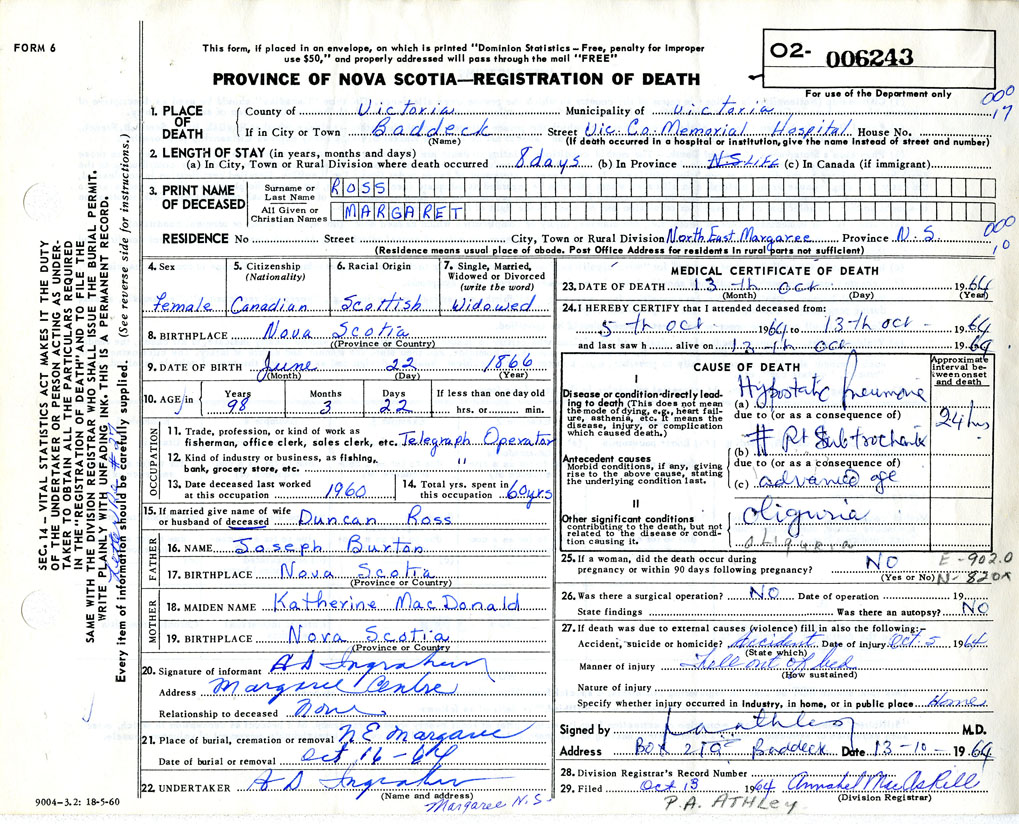 FORM 6
This form, if placed in an envelope, on which is printed "Dominion Statistics – Free, penalty for improper
use $50," and properly addressed will pass through the mail "FREE"
PROVINCE OF NOVA SCOTIA—REGISTRATION OF DEATH
02- 006243
For use of the Department only
000
17
SEC. 14 – VITAL STATISTICS ACT MAKES IT THE DUTY
OF THE UNDERTAKER OR PERSON ACTING AS UNDER-
TAKER TO OBTAIN ALL THE PARTICULARS REQUIRED
IN THE "REGISTRATION OF DEATH" AND TO FILE THE
SAME WITH THE DIVISION REGISTRAR WHO SHALL ISSUE THE BURIAL PERMIT.
WRITE PLAINLY WITH UNFADING INK. THIS IS A PERMANENT RECORD.
Every item of information should be carefully supplied. (See reverse side for instructions.)
1. PLACE OF DEATH
County of Victoria Municipality of Victoria
If in City or Town Baddeck Street Vic. Co. Memorial Hospital House No.
(Name) (If death occurred in a hospital or institution, give the name instead of street and number)
2. LENGTH OF STAY (in years, months and days)
(a) In City, Town or Rural Division where death occurred 8 days (b) In Province NS LIFE (c) In Canada (if immigrant)
3. PRINT NAME OF DECEASED
Surname or Last Name ROSS
All Given or Christian Names MARGARET
000
10
RESIDENCE No Street City, Town or Rural Division North East Margaree Province N.S
(Residence means usual place of abode. Post Office Address for residents in rural parts not sufficient)
4. Sex Female
5. Citizenship (Nationality) Canadian
6. Racial Origin Scottish
7. Single, Married, Widowed or Divorced (write the word) Widowed
8. BIRTHPLACE Nova Scotia
(Province or Country)
9. DATE OF BIRTH June 22 1866
(Month) (Day) (Year)
10. AGE in Years 98 Months 3 Days 22 If less than one day old hrs. or min.
OCCUPATION
11. Trade, profession, or kind of work as
fisherman, office clerk, sales clerk, etc. Telegraph Operator
12. Kind of industry or business, as fishing,
bank, grocery store, etc. "
13. Date deceased last worked
at this occupation 1960
14. Total yrs. spent in
this occupation 60 yrs
15. If married give name of wife
or husband of deceased Duncan Ross
FATHER
16. NAME Joseph Burton
17. BIRTHPLACE Nova Scotia
(Province or Country)
MOTHER
18. MAIDEN NAME Katherine MacDonald
19. BIRTHPLACE Nova Scotia
(Province or Country)
20. Signature of informant A D Ingraham
Address Margaree Centre
Relationship to deceased None
21. Place of burial, cremation or removal N E Margaree
Date of burial or removal Oct 16 - 64
22. UNDERTAKER A D Ingraham
(Name and address)
Margaree N.S.
9004-3.2: 18-5-60
MEDICAL CERTIFICATE OF DEATH
23. DATE OF DEATH 13 th oct 1964
(Month) (Day) (Year)
24. I HEREBY CERTIFY that I attended deceased from:
5 th oct 1964 to 13th oct 1964
and last saw h alive on 13 th oct 1964
CAUSE OF DEATH
Approximate interval between onset and death
I
Disease or condition directly leading to death (This does not mean the mode of dying, e.g., heart failure, asthenia, etc. It means the disease, injury, or complication which caused death.)
(a) Hypostatic pneumonia 24 hrs
due to (or as a consequence of)
Antecedent causes
Morbid conditions, if any, giving rise to the above cause, stating the underlying condition last.
(b) # Rt Subtrochanter
due to (or as a consequence of)
(c) advanced age
II
Other significant conditions contributing to the death, but not related to the disease or condition causing it.
oliguria
OLIGURIA
25. If a woman, did the death occur during
pregnancy or within 90 days following pregnancy? NO
(Yes or No)
E - 902.0
N - 820
26. Was there a surgical operation? NO Date of operation 19
State findings Was there an autopsy? NO
27. If death was due to external causes (violence) fill in also the following:–
Accident, suicide or homicide? Accident Date of injury Oct 5 1964
(State which)
Manner of injury Fell out of bed
(How sustained)
Nature of injury
Specify whether injury occurred in industry, in home, or in public place Home
Signed by M.D.
Address Box 210 Baddeck Date 13-10-1964
28. Division Registrar's Record Number
29. Filed Oct 13 1964 Annabel MacAskill
(Division Registrar)
P.A. ATHLEY